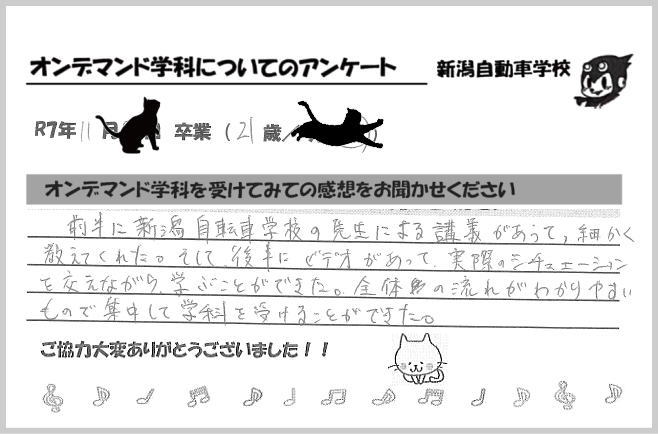 オンデマンド学科についてのアンケート 新潟自動車学校
R7年11月 卒業（21歳／
オンデマンド学科を受けてみての感想をお聞かせください
前半に新潟自転車学校の先生による講義があって,細かく
教えてくれた。そして、後半にビデオがあって、実際のシチュエーション
を交えながら、学ぶことができた。全体の流れがわかりやすい
もので集中して学科を受けることができた。
ご協力大変ありがとうございました！！